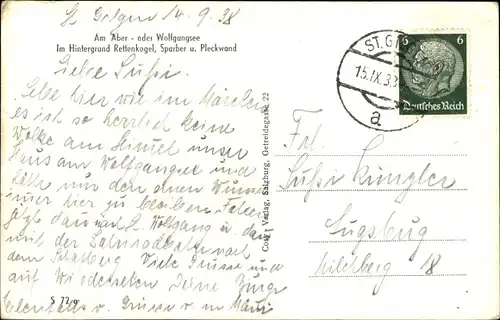 St Gilgen 14.9.38
Am Aber- oder Wolfgangsee
Im Hintergrund Rettenkogel, Sparber u. Pleckwand
Liebe Sussi.
Lebe hier wie im Märchen
es ist so herrlich keine
Wolke am Himel unser
Haus am Wolfgangsee und
hätte nur den einen Wunsch
imer hier zu bleiben
jetzt dan nach St Wolfgang u. dan
mit der Zahnradbahn nach
dem Schafberg Viele Grüsse und
auf Wiedersehen Deine
u. Grüsse v. m
S 72/9
Cosy-Verlag, Salzburg, Getreidegasse 22
ST. G
15.IX.38
a
6 6
Deutsches Reich
Frl.
Sussi
Augsburg
Milchberg 18